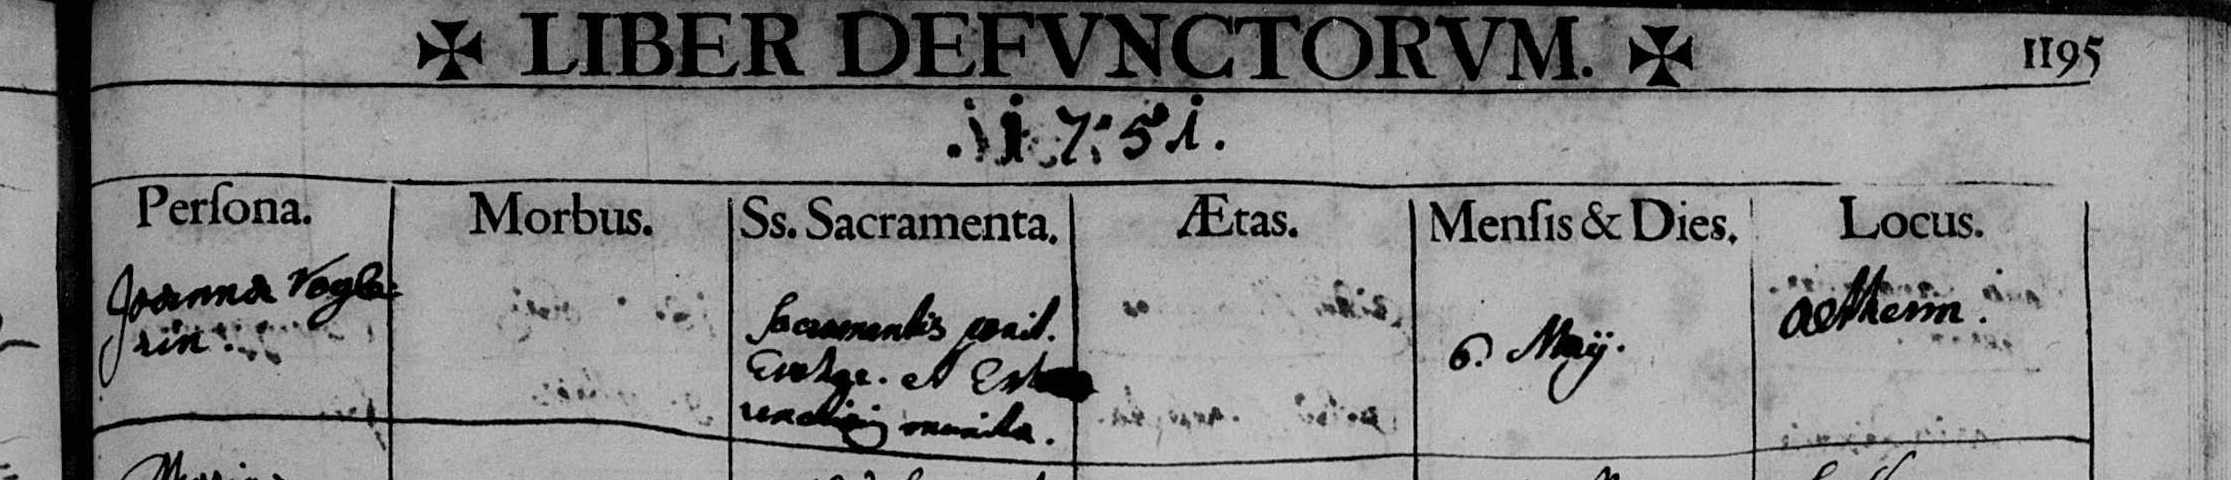 ✠ LIBER DEFVNCTORVM. ✠ 1195
.1751.
Perſona. Morbus. Ss. Sacramenta. Ætas. Menſis & Dies. Locus.
Joanna Vogle-
rin.
Sacramentis penit.
Euchar. et Ext
unctionis munita.
6. Maij.